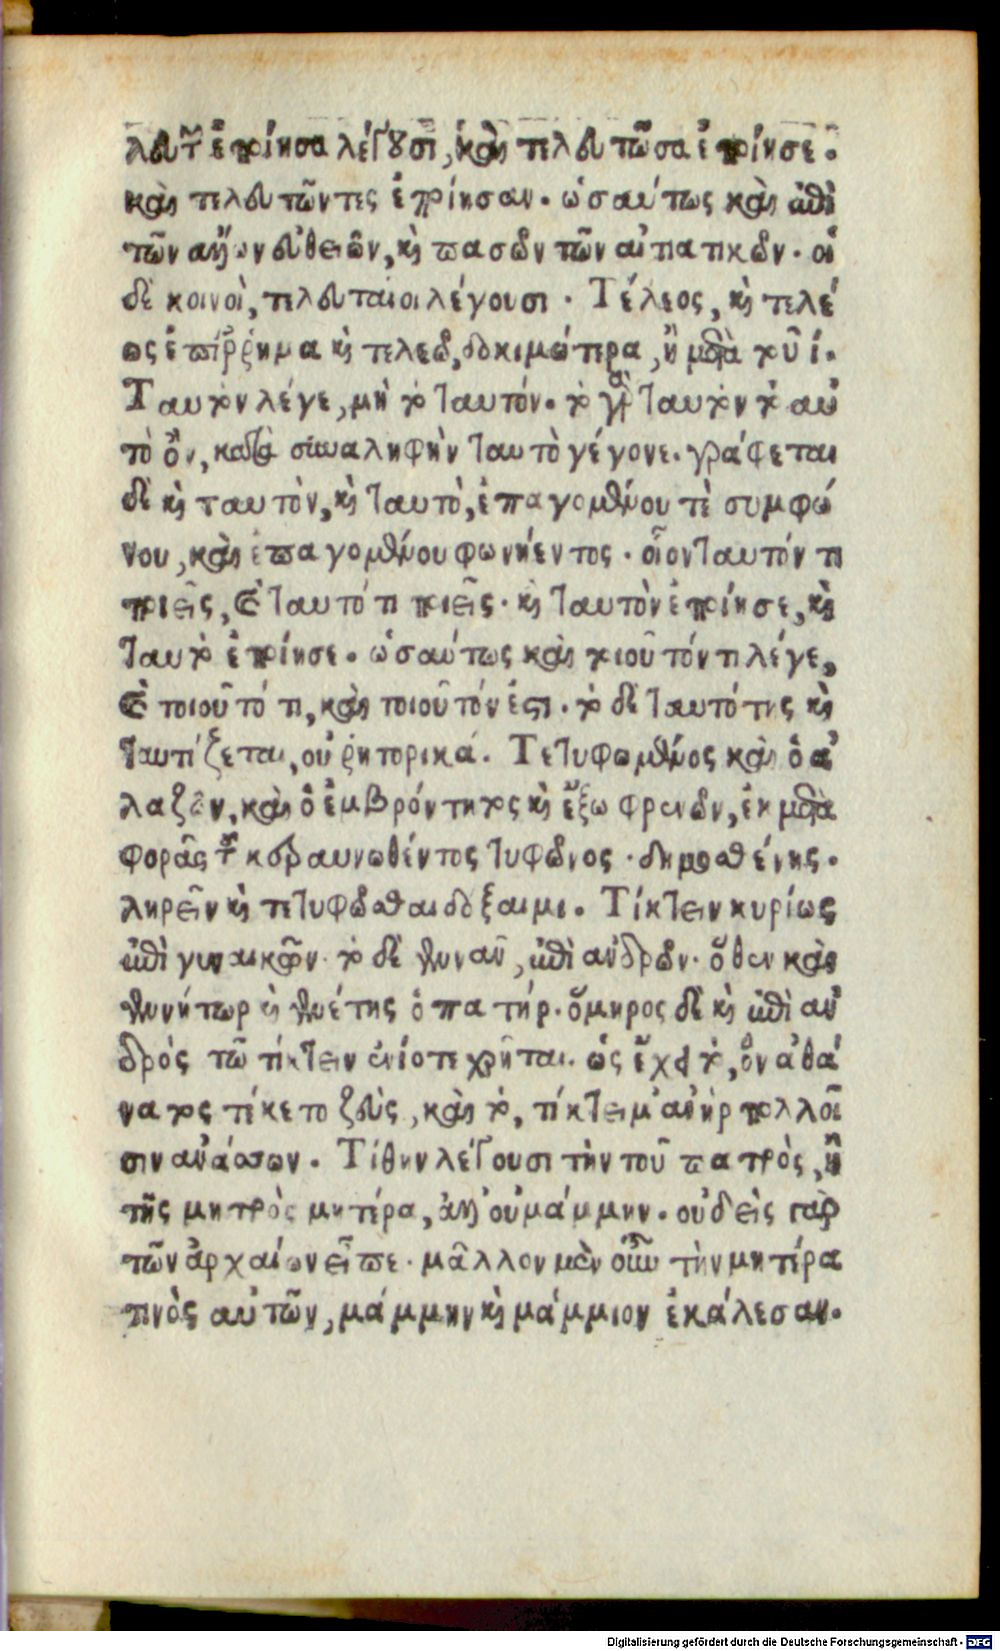 λευτ ἐποίησα λέγουσι, καὶ τελευτῶσα ἐποίησε.
καὶ τελευτῶντες ἐποίησαν. ὡσαύτως καὶ ἐπὶ
τῶν ἄλλων εὐθειῶν, καὶ πασῶν τῶν αἰτιατικῶν. οἱ
δὲ κοινοὶ, τελευταῖοι λέγουσι. Τέλεος, καὶ τελέ
ως ἐπίῤῥημα καὶ τελεῶ, δοκιμώτερα, ἢ μετὰ τοῦ ί.
Ταυτὸν λέγε, μὴ τὸ ταυτόν. τὸ γὰρ ταυτὸν τὸ αὐ
τὸ ὂν, κατὰ συναλιφὴν ταυτὸ γέγονε. γράφεται
δὲ καὶ ταυτὸν, καὶ ταυτὸ, ἐπαγομένου τὲ συμφώ
νου, καὶ ἐπαγομένου φωνήεντος. οἷον ταυτόν τι
ποιεῖς, καὶ ταυτό τι ποιεῖς. καὶ ταυτὸν ἐποίησε, καὶ
ταυτὸ ἐποίησε. ὡσαύτως καὶ τοιοῦτόν τι λέγε,
καὶ τοιοῦτό τι, καὶ τοιοῦτόν ἐστι. τὸ δὲ ταυτότης καὶ
ταυτίζεται, οὐ ῥητορικά. Τετυφωμένος καὶ ὁ ἀ
λαζὼν, καὶ ὁ ἐμβρόντητος καὶ ἔξω φρενῶν, ἐκ μετα
φορᾶς τοῦ κεραυνωθέντος τυφῶνος. δημοσθένης.
ληρεῖν καὶ τετυφῶσθαι δόξαιμι. Τίκτειν κυρίως
ἐπὶ γυναικῶν. τὸ δὲ γεννᾶν, ἐπὶ ἀνδρῶν. ὅθεν καὶ
γεννήτωρ καὶ γενέτης ὁ πατήρ. ὅμηρος δὲ καὶ ἐπὶ ἀν
δρὸς τῶ τίκτειν ἐνίοτε χρῆται. ὡς ἔχει τὸ, ὃν ἀθά
νατος τέκετο ζεὺς, καὶ τὸ, τίκτει μ' ἀνὴρ πολλοῖ
σιν ἀνάσσων. Τίθην λέγουσι τὴν τοῦ πατρὸς, ἢ
τῆς μητρὸς μητέρα, ἀλλ' οὐ μάμμην. οὐδεὶς γὰρ
τῶν ἀρχαίων εἶπε. μᾶλλον μὲν οὖν τὴν μητέρα
τινὲς αὐτῶν, μάμμην καὶ μάμμιον ἐκάλεσαν.
Digitalisierung gefördert durch die Deutsche Forschungsgemeinschaft - DFG